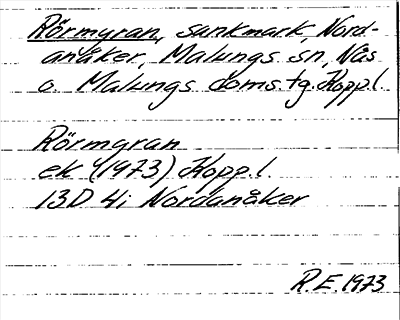 Rörmyran, sankmark, Nord-
anåker, Malungs sn, Nås
o. Malungs doms.tg. Kopp.l.
Rörmyran
ek (1973) Kopp.l.
13D 4i Nordanåker
R.E. 1973